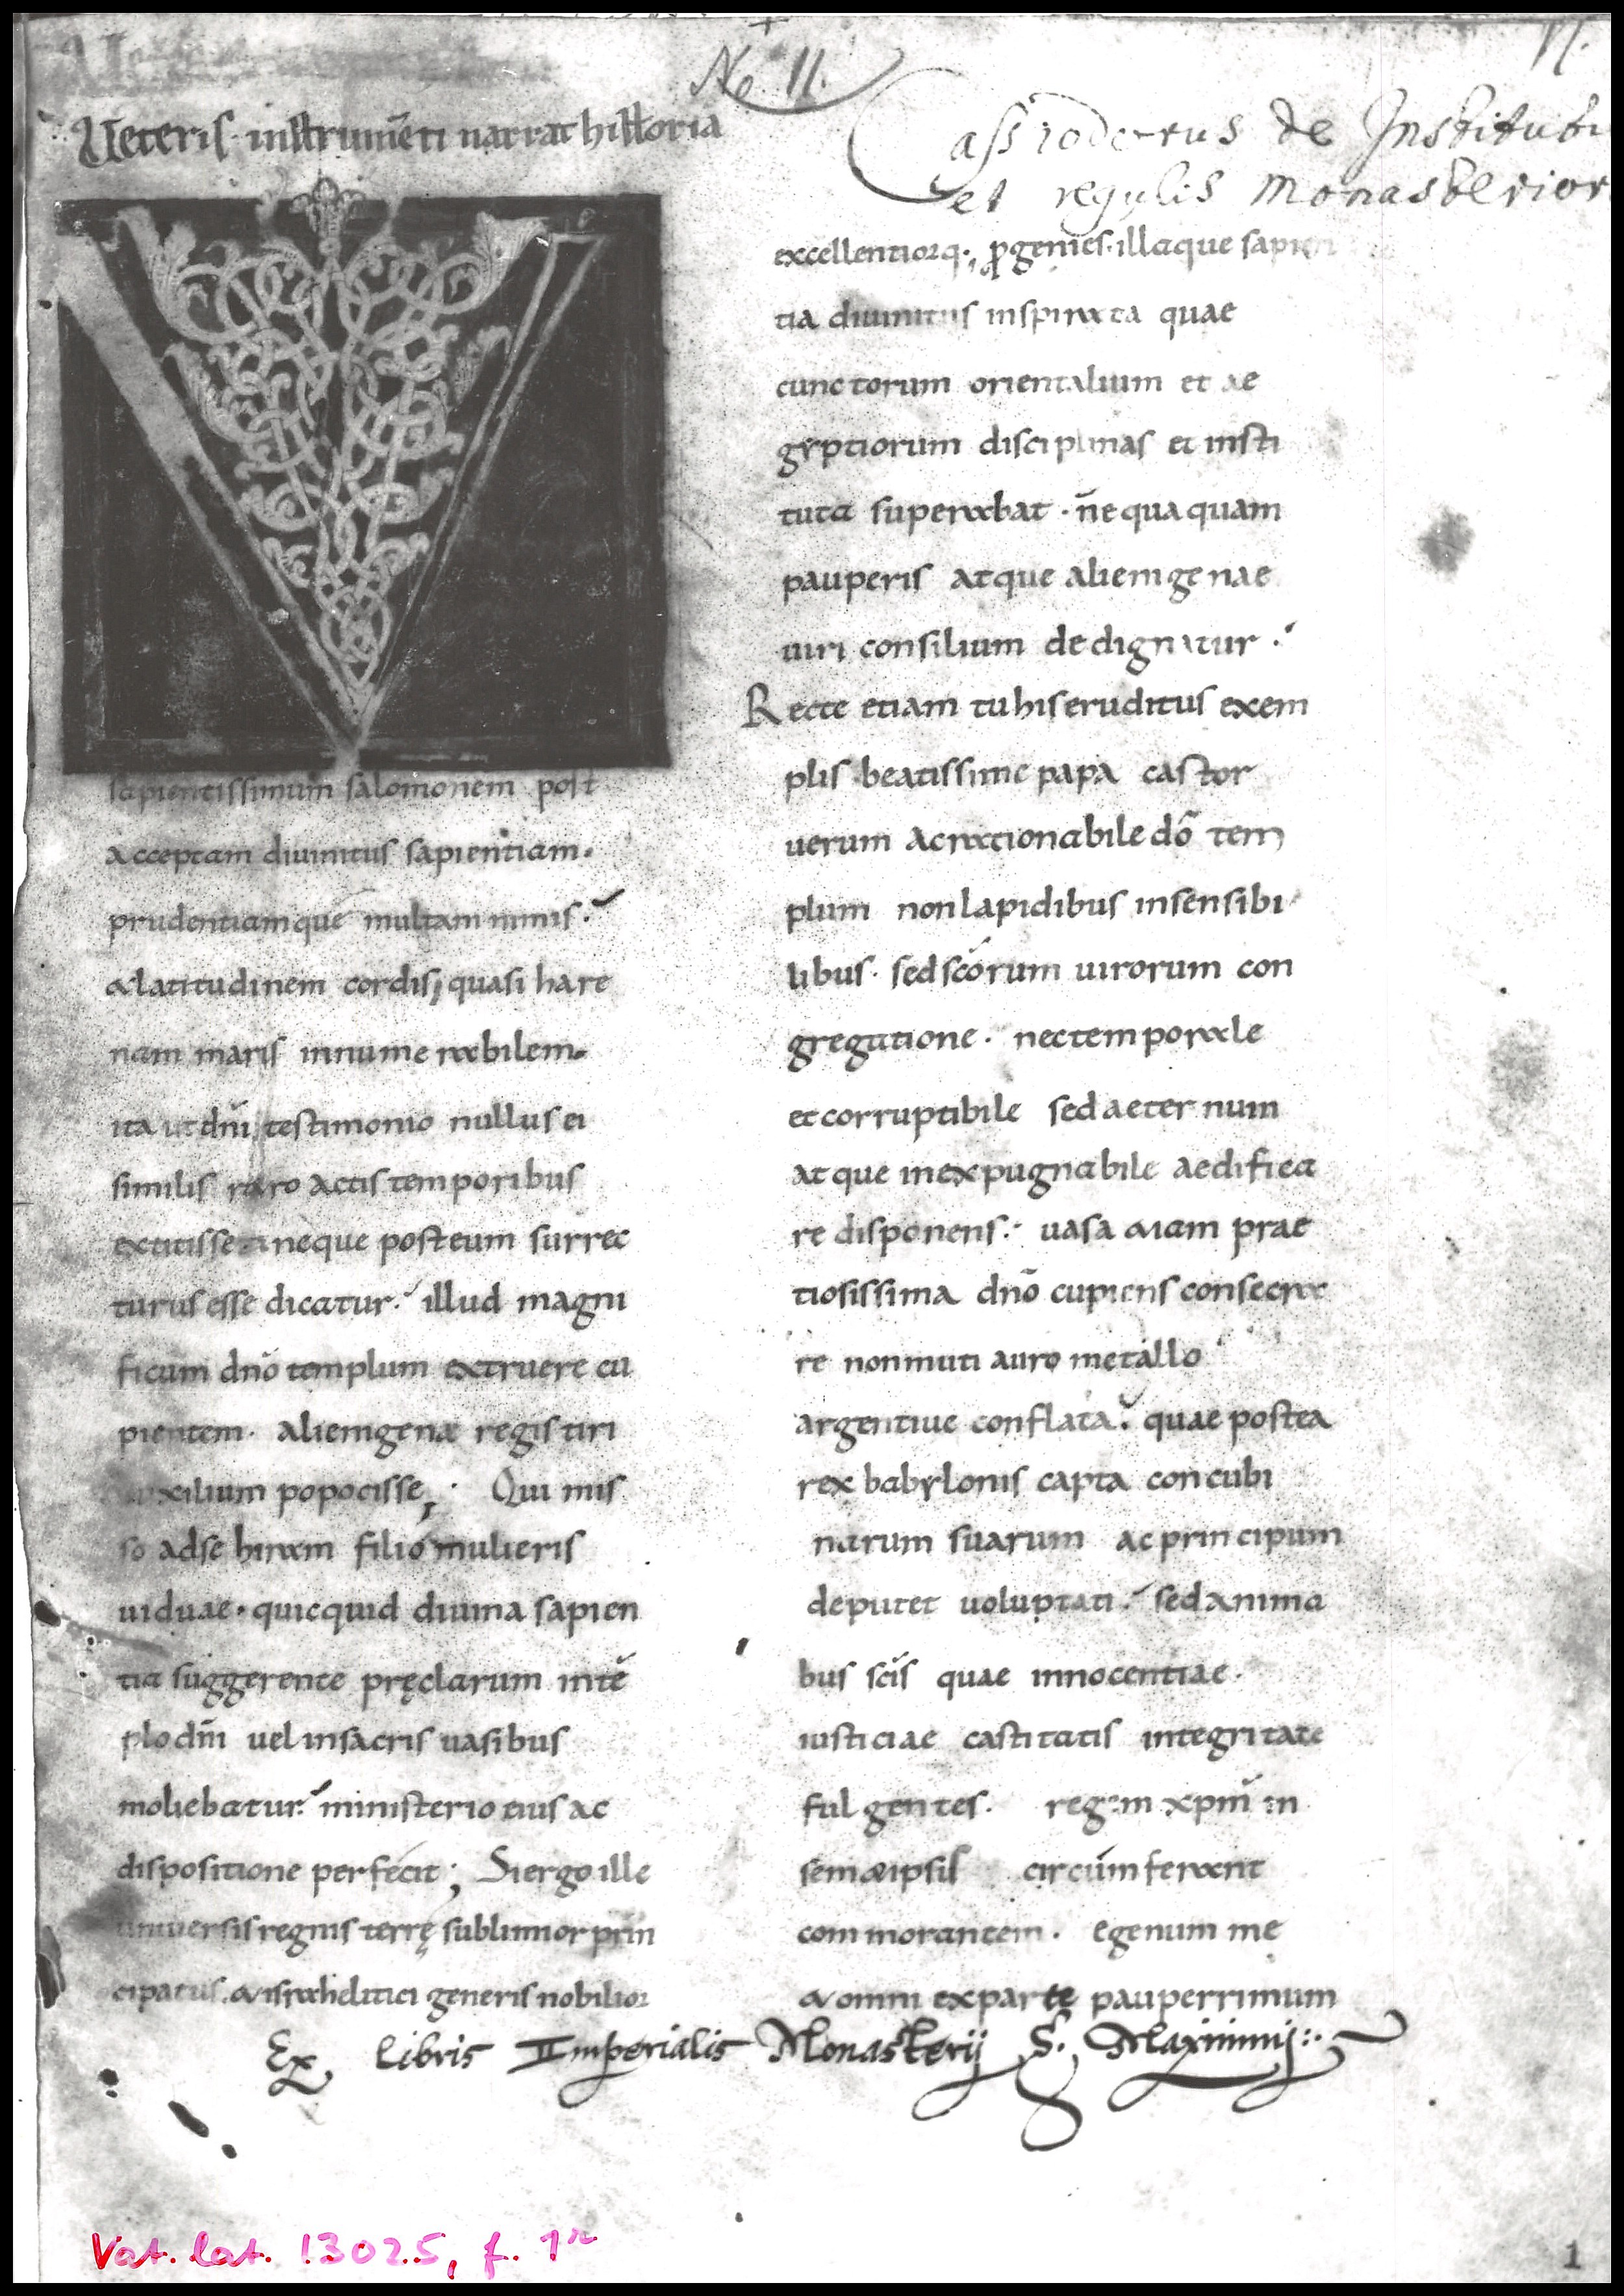 No. 11.
Cassioderus de Instituti
et regulis Monasterior
Ueteris · instrum̄eti narrat historia
V
sapientissimum salomonem post
acceptam diuinitus sapientiam.
prudentiamque multam nimis:
& latitudinem cordis, quasi hare
nam maris innumerabilem.
ita ut dn̄i testimonio nullus ei
similis retro actis temporibus
extitisse neque post eum surrec
turus esse dicatur. illud magni
ficum dn̄o templum extruere cu
pientem. alienigenæ regis tiri
auxilium popocisse; Qui mis
so adse hiram filio mulieris
uiduae. quicquid diuina sapien
tia suggerente pręclarum in tē
plo dn̄i uel insacris uasibus
moliebatur. ministerio eius ac
dispositione perfecit; Si ergo ille
uniuersis regnis terrę sublimior prin
cipatus. & israhelitici generis nobilior
excellentiorq; ꝓgenies. illaque sapien
tia diuinitus inspirata quae
cunctorum orientalium et ae
gyptiorum disciplinas et insti
tuta superabat · n̄e quaquam
pauperis atque alienigenae
uiri consilium dedignatur .
Recte etiam tu his eruditus exem
plis · beatissime papa castor
uerum ac rationabile dō tem
plum non lapidibus insensibi
libus. sed scōrum uirorum con
gregatione. nec temporale
et corruptibile sed aeternum
atque inexpugnabile aedifica
re disponens: uasa &iam prae
tiosissima dn̄o cupiens consecra
re non muti auro metallo
argentiue conflata. quae postea
rex babylonis capta concubi
narum suarum ac principum
deputet uoluptati. sed anima
bus sc̄is quae innocentiae.
iusticiae castitatis integritate
fulgentes. regem xpm̄ in
sem&ipsis circumferant
commorantem. egenum me
& omni ex parte pauperrimum
Ex libris Imperialis Monasterij S. Maximij
Vat. lat. 13025, f. 1r
1